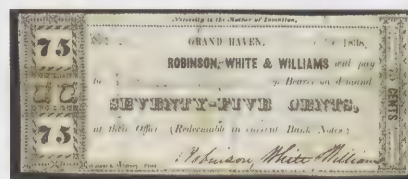 Necessity is the Mother of Invention.
75
GRAND HAVEN, 1838.
ROBINSON, WHITE & WILLIAMS will pay
to Bearer on demand
SEVENTY-FIVE CENTS,
at their Office (Redeemable in current Bank Notes)
75
Robinson, White Williams
CENTS